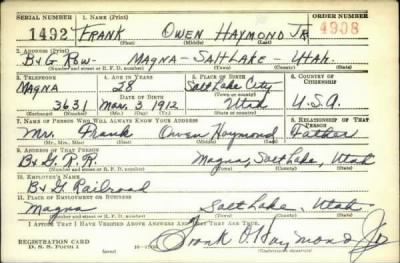 SERIAL NUMBER 1. NAME (Print) ORDER NUMBER
1492 FRANK OWEN HAYMOND JR 4908
(First) (Middle) (Last)
2. ADDRESS (Print)
B & G Row - MAGNA - SALT LAKE - UTAH.
(Number and street or R. F. D. number) (Town) (County) (State)
3. TELEPHONE 4. AGE IN YEARS 5. PLACE OF BIRTH 6. COUNTRY OF CITIZENSHIP
Magna 28 Salt Lake City
DATE OF BIRTH (Town or county)
3631 Mar. 3 1912 Utah U.S.A.
(Exchange) (Number) (Mo.) (Day) (Yr.) (State or country)
7. NAME OF PERSON WHO WILL ALWAYS KNOW YOUR ADDRESS 8. RELATIONSHIP OF THAT PERSON
Mr. Frank Owen Haymond Father
(Mr., Mrs., Miss) (First) (Middle) (Last)
9. ADDRESS OF THAT PERSON
B & G. R. R. Magna, Salt Lake, Utah
(Number and street or R. F. D. number) (Town) (County) (State)
10. EMPLOYER'S NAME
B & G Railroad
11. PLACE OF EMPLOYMENT OR BUSINESS
Magna Salt Lake, Utah
(Number and street or R. F. D. number) (Town) (County) (State)
I AFFIRM THAT I HAVE VERIFIED ABOVE ANSWERS AND THAT THEY ARE TRUE.
REGISTRATION CARD
D. S. S. FORM 1
Frank O. Haymond Jr